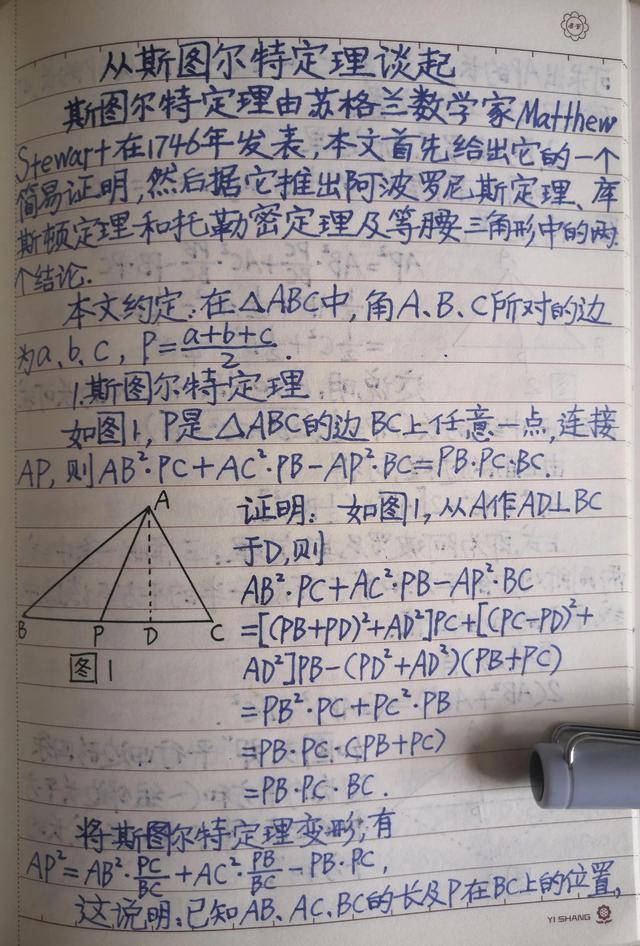 从斯图尔特定理谈起
斯图尔特定理由苏格兰数学家Matthew
Stewart在1746年发表,本文首先给出它的一个
简易证明,然后据它推出阿波罗尼斯定理、库
斯顿定理和托勒密定理及等腰三角形中的两
个结论.
本文约定:在△ABC中,角A、B、C所对的边
为a、b、c,P=\frac{a+b+c}{2}.
1.斯图尔特定理
如图1,P是△ABC的边BC上任意一点,连接
AP,则AB²·PC+AC²·PB-AP²·BC=PB·PC·BC.
A
B
P
D
C
图1
证明:如图1,从A作AD⊥BC
于D,则
AB²·PC+AC²·PB-AP²·BC
=[(PB+PD)²+AD²]PC+[(PC-PD)²+
AD²]PB-(PD²+AD²)(PB+PC)
=PB²·PC+PC²·PB
=PB·PC·(PB+PC)
=PB·PC·BC.
将斯图尔特定理变形,有
AP²=AB²·\frac{PC}{BC}+AC²·\frac{PB}{BC}-PB·PC,
这说明:已知AB、AC、BC的长及P在BC上的位置,
YI SHANG